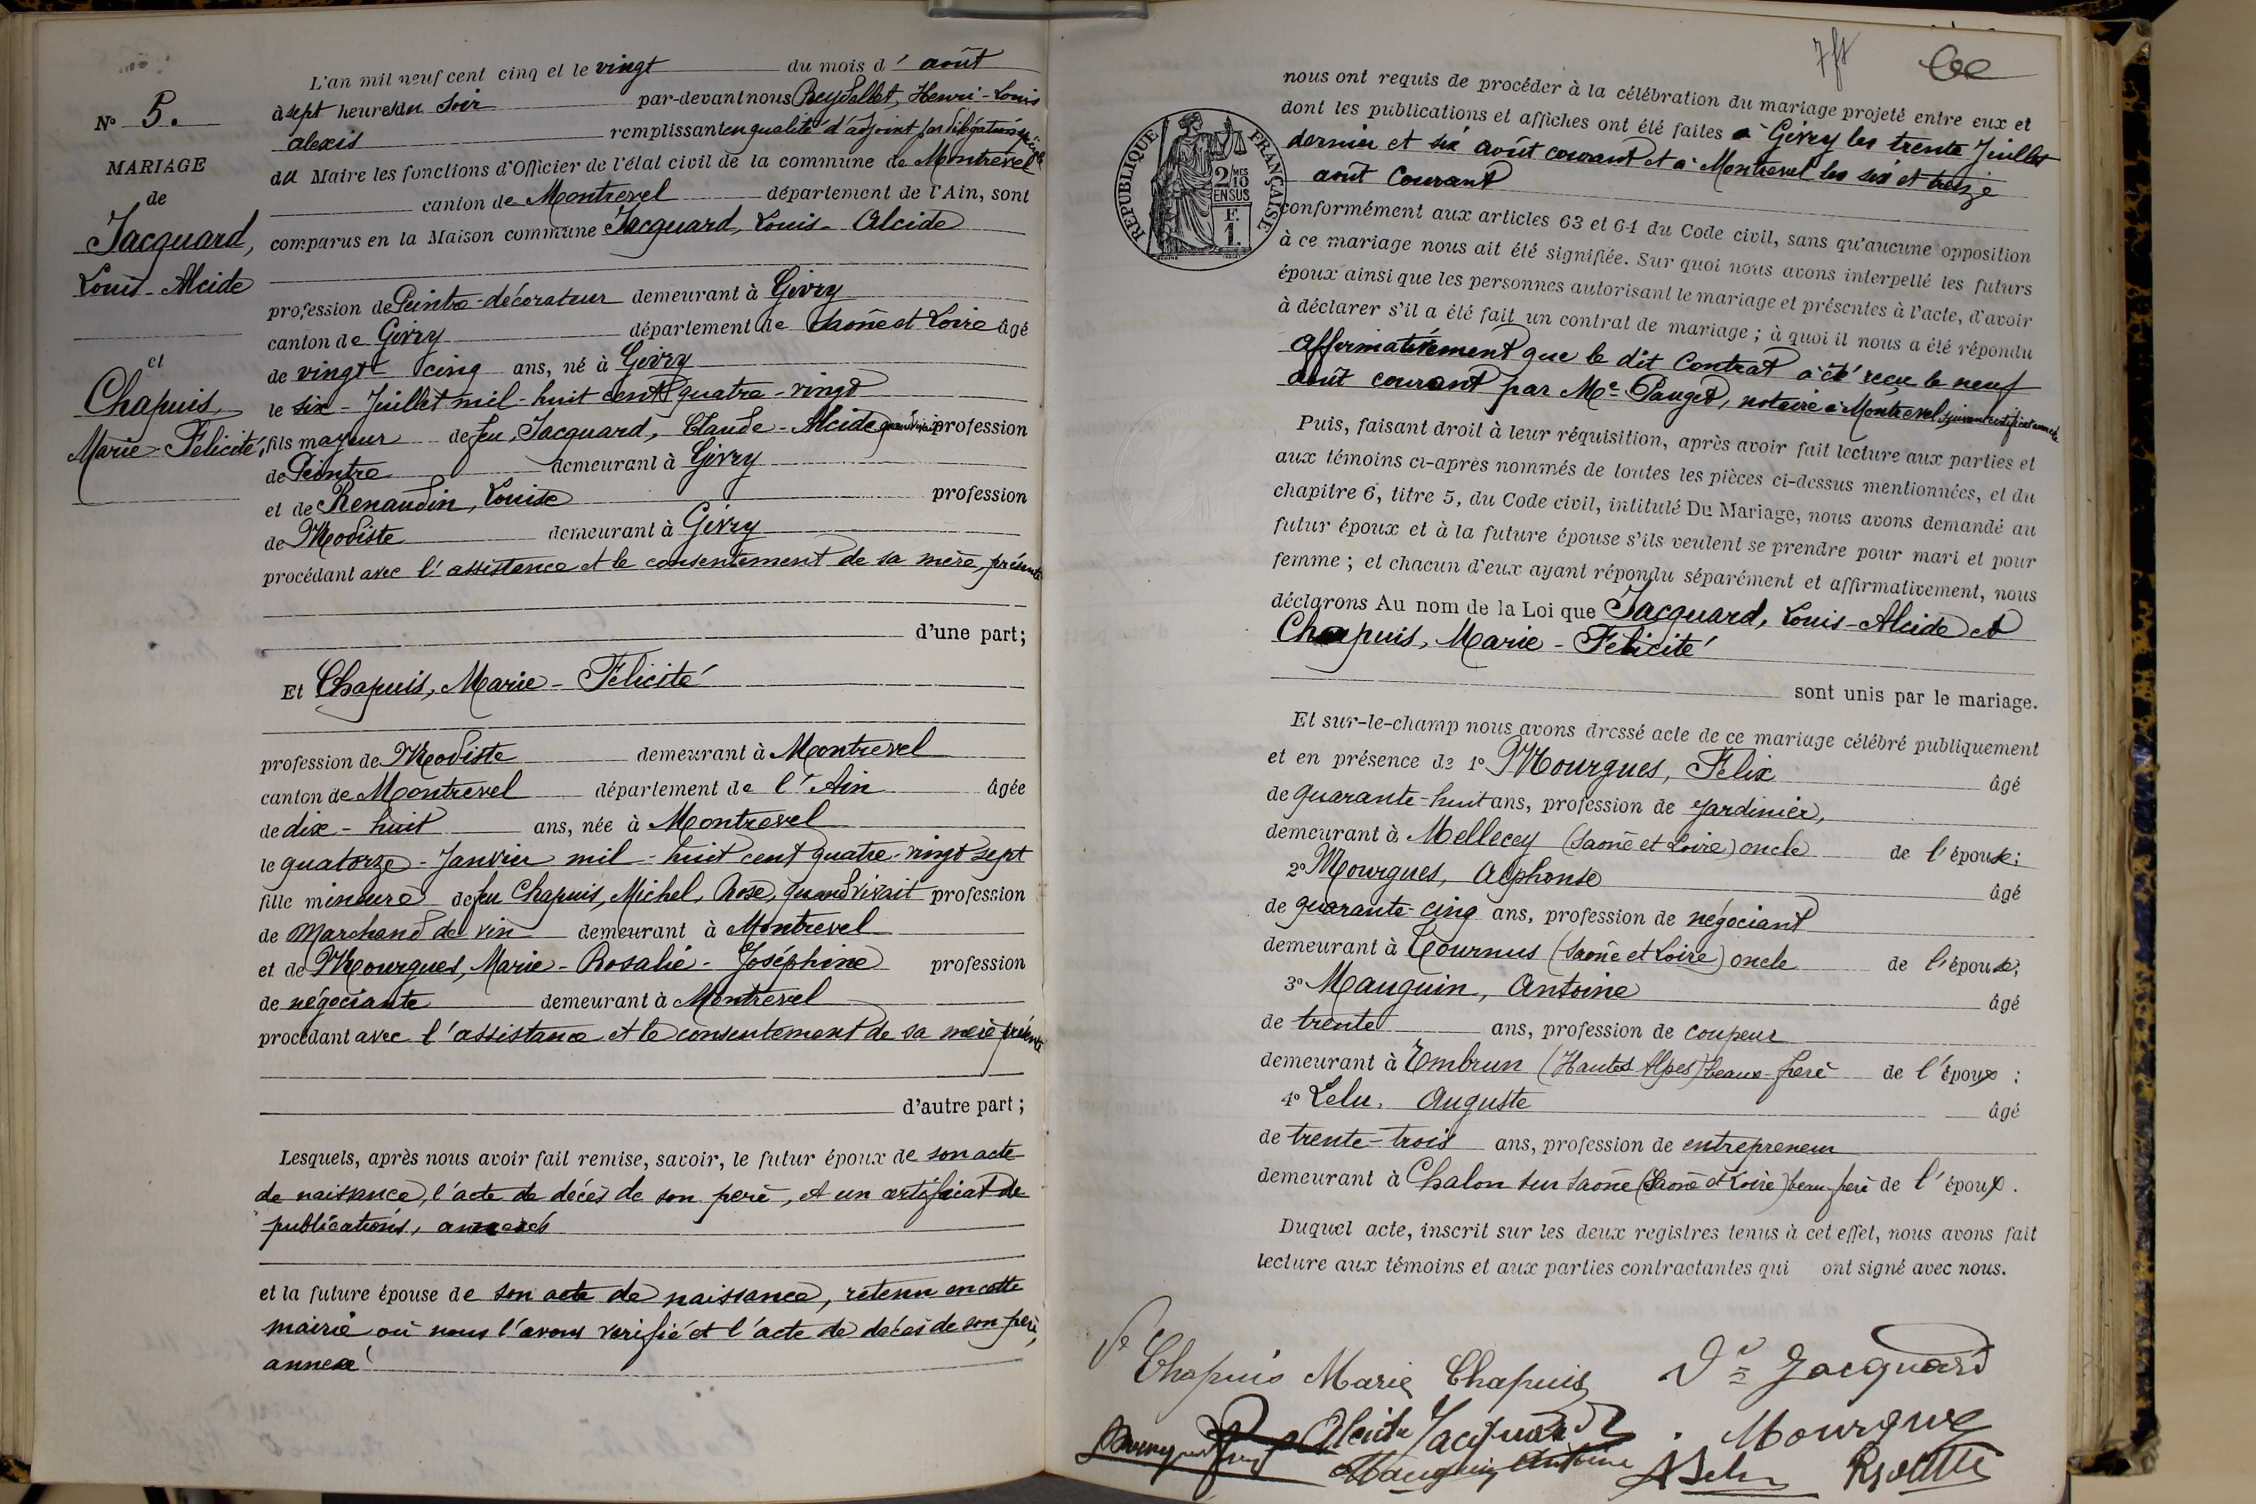 L'an mil neuf cent cinq et le vingt du mois d' août
à sept heures du soir par-devant nous Reydellet, Henri-Louis
alexis remplissant en qualité d'adjoint par délégation
du Maire les fonctions d'Officier de l'état civil de la commune de Montrevel
canton de Montrevel département de l'Ain, sont
comparus en la Maison commune Jacquard, Louis-Alcide
profession de Peintre-décorateur demeurant à Givry
canton de Givry département de Saône et Loire âgé
de vingt cinq ans, né à Givry
le six-Juillet mil-huit cent quatre-vingt
fils majeur de feu, Jacquard, Claude-Alcide quand vivait profession
de Peintre demeurant à Givry
et de Renaudin, Louise profession
de Modiste demeurant à Givry
procédant avec l'assistance et le consentement de sa mère présente
d'une part;
Et Chapuis, Marie-Félicité
profession de Modiste demeurant à Montrevel
canton de Montrevel département de l'Ain âgée
de dix-huit ans, née à Montrevel
le quatorze-Janvier mil-huit cent quatre-vingt sept
fille mineure de feu Chapuis, Michel, Rose, quand vivait profession
de Marchand de vin demeurant à Montrevel
et de Mourgues, Marie-Rosalie-Joséphine profession
de négociante demeurant à Montrevel
procédant avec l'assistance et le consentement de sa mère présente
d'autre part;
Lesquels, après nous avoir fait remise, savoir, le futur époux de son acte
de naissance, l'acte de décès de son père, et un certificat de
publications, annexés
et la future épouse de son acte de naissance, retenu en cette
mairie où nous l'avons vérifié et l'acte de décès de son père,
annexé
N° 5.
MARIAGE
de
Jacquard,
Louis-Alcide
et
Chapuis,
Marie-Félicité,
RÉPUBLIQUE FRANÇAISE
2 MES
10
EN SUS
F.
1.
nous ont requis de procéder à la célébration du mariage projeté entre eux et
dont les publications et affiches ont été faites à Givry les trente Juillet
dernier et six août courant et à Montrevel les six et treize
août courant
conformément aux articles 63 et 64 du Code civil, sans qu'aucune opposition
à ce mariage nous ait été signifiée. Sur quoi nous avons interpellé les futurs
époux ainsi que les personnes autorisant le mariage et présentes à l'acte, d'avoir
à déclarer s'il a été fait un contrat de mariage; à quoi il nous a été répondu
affirmativement que le dit Contrat a été reçu le neuf
août courant par Me Pauget, notaire à Montrevel suivant certificat annexé
Puis, faisant droit à leur réquisition, après avoir fait lecture aux parties et
aux témoins ci-après nommés de toutes les pièces ci-dessus mentionnées, et du
chapitre 6, titre 5, du Code civil, intitulé Du Mariage, nous avons demandé au
futur époux et à la future épouse s'ils veulent se prendre pour mari et pour
femme; et chacun d'eux ayant répondu séparément et affirmativement, nous
déclarons Au nom de la Loi que Jacquard, Louis-Alcide et
Chapuis, Marie-Félicité
sont unis par le mariage.
Et sur-le-champ nous avons dressé acte de ce mariage célébré publiquement
et en présence de 1° Mourgues, Félix âgé
de quarante-huit ans, profession de Jardinier,
demeurant à Mellecey (Saône et Loire) oncle de l'épouse;
2° Mourgues, Alphonse âgé
de quarante-cinq ans, profession de négociant
demeurant à Tournus (Saône et Loire) oncle de l'épouse;
3° Mauguin, Antoine âgé
de trente ans, profession de coupeur
demeurant à Embrun (Hautes Alpes) beau-frère de l'époux:
4° Lelu, Auguste âgé
de trente-trois ans, profession de entrepreneur
demeurant à Chalon sur Saône (Saône et Loire) beau-frère de l'époux.
Duquel acte, inscrit sur les deux registres tenus à cet effet, nous avons fait
lecture aux témoins et aux parties contractantes qui ont signé avec nous.
Ve Chapuis Marie Chapuis Ve Jacquard
Alcide Jacquard Mourgues
Mauguin Antoine A Lelu